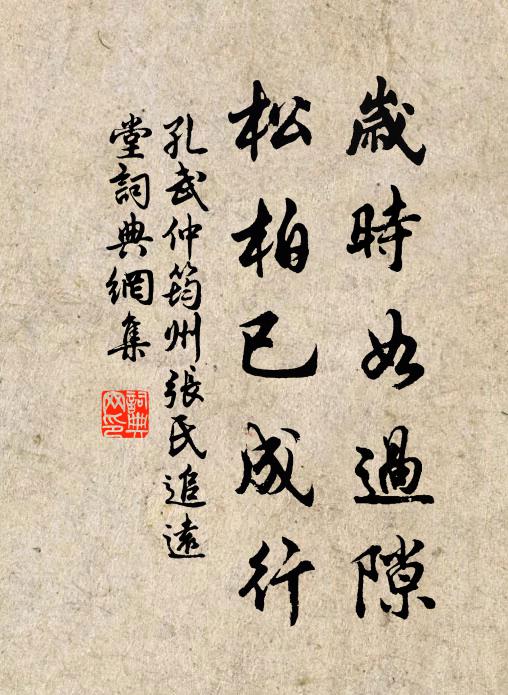 歲時如過隙
松柏已成行
孔武仲筠州張氏追遠
堂詞典網集
詞典网印